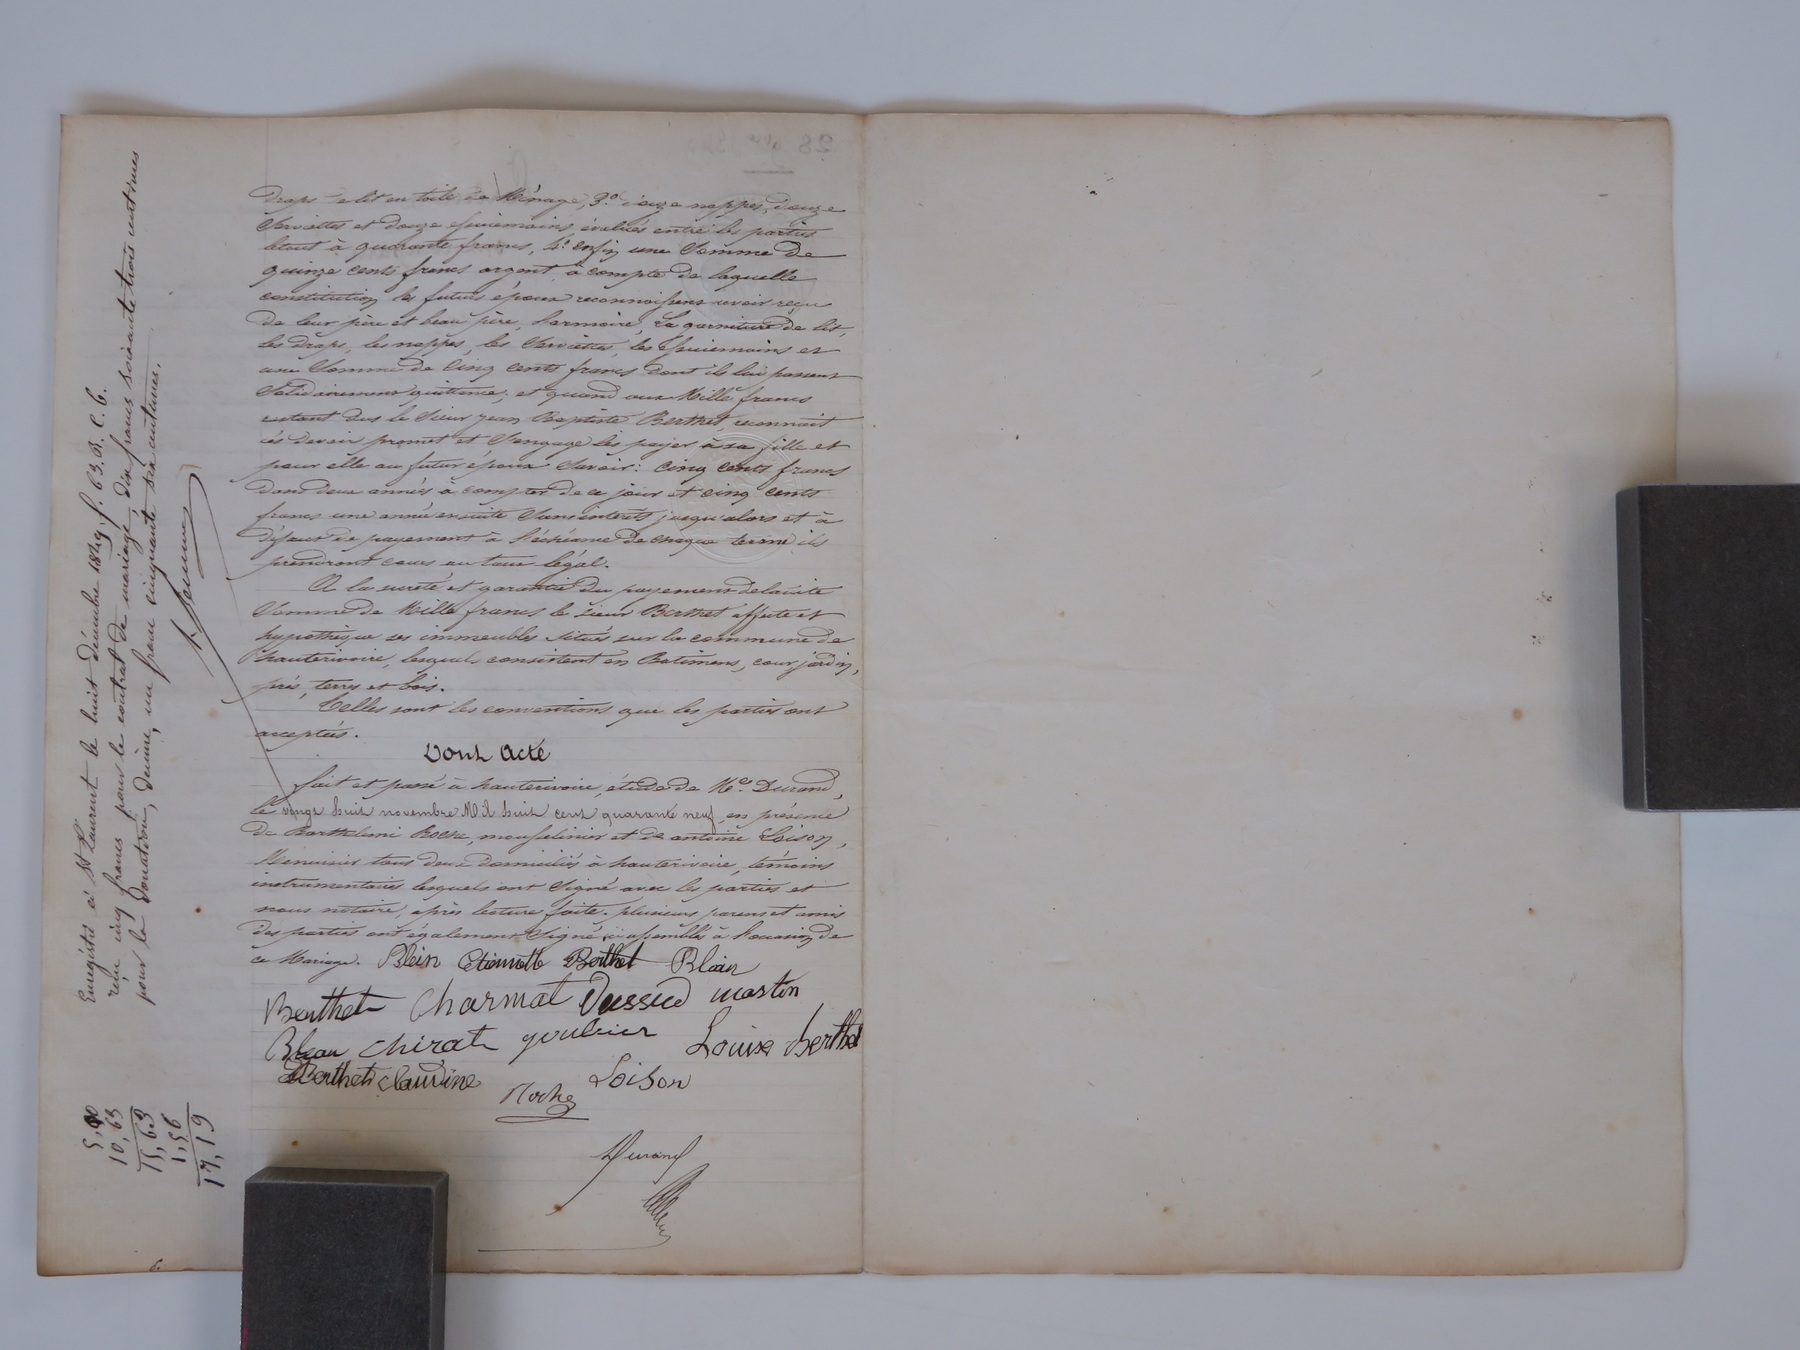 draps de lit en toile de Ménage, 3.° douze nappes, douze
Serviettes et douze essuiemains évalués entre les parties
le tout à quarante francs, 4.° enfin une Somme de
quinze cents francs argent, à compte de laquelle
constitution les futurs époux reconnoissent avoir reçu
de leur père et beau père, l'armoire, La garniture de lit,
les draps, les nappes, les Serviettes, les essuiemains et
une Somme de Cinq cents francs dont ils lui passent
Solidairement quittance; et quand aux Mille francs
restant dus le Sieur Jean Baptiste Berthet, reconnait
les devoir promet et S'engage les payer à sa fille et
pour elle au futur époux Savoir: Cinq cents francs
dans deux années à compter de ce jour et cinq cents
francs une année ensuite Sans interêts jusqu'alors et à
défaut de payement à l'échéance de chaque terme ils
prendront cours au taux légal.
A la sureté et garantie du payement de la dite
Somme de Mille francs le Sieur Berthet affecte et
hypothèque ses immeubles Situés sur la commune de
hauterivoire, lesquels consistent en Batimens, cour, jardin,
prés, terres et bois.
Telles sont les conventions que les parties ont
acceptées.
Dont Acte
fait et passé à hauterivoire, étude de M.e Durand,
le vingt huit novembre Mil huit cent quarante neuf, en présence
de Barthelemi Roche, mousselinier et de antoine Loison,
Menuisier tous deux domiciliés à hauterivoire, témoins
instrumentaires lesquels ont Signé avec les parties et
nous notaire, après lecture faite. plusieurs parens et amis
des parties ont également Signé ici assemblés à l'occasion de
ce Mariage. Blein Etiennette Berthet Blain
Berthet Charmat Dussud martin
Blean Chirat goubier Louise berthet
Berthet Claudine Loison
Roche
Durand
Enregistré à St Laurent le huit décembre 1849, f. 63. R. C. 6.
reçu cinq francs pour le contrat de mariage, dix francs soixante trois centimes
pour la Donation, decime, un franc cinquante six centimes.
5,00
10,63
15,63
1,56
17,19